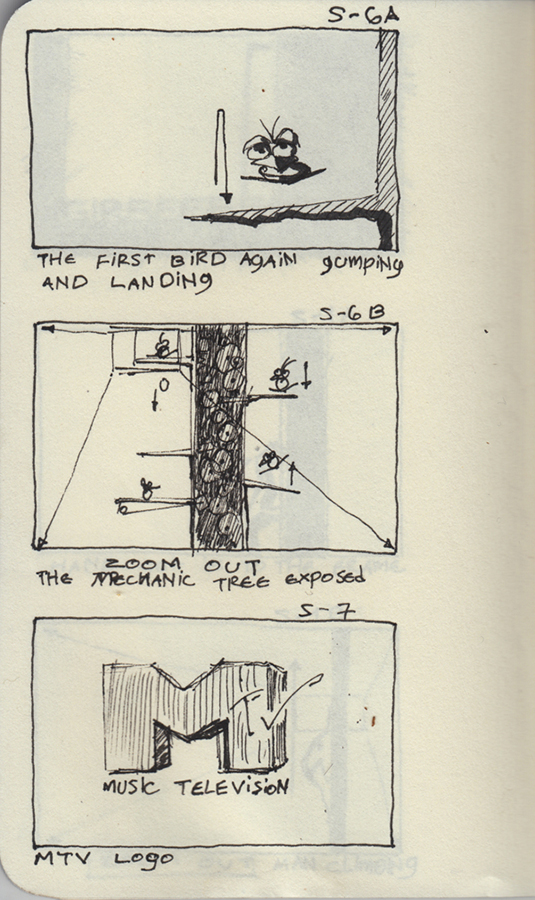 S-6A
THE FIRST BIRD AGAIN gumping
AND LANDING
S-6B
ZOOM OUT
THE MECHANIC TREE EXPOSED
S-7
M TV
MUSIC TELEVISION
MTV LOGO